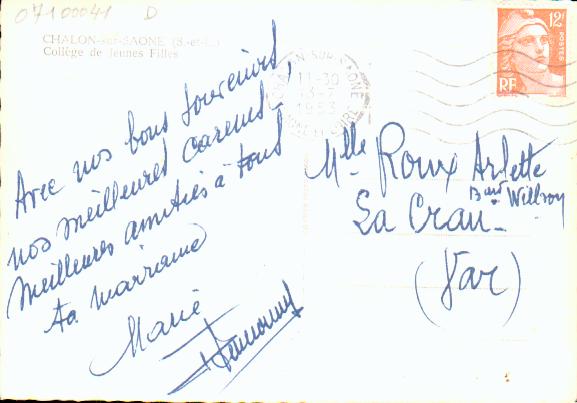 07100041 D
CHALON-sur-SAONE (S.-et-L.)
Collège de Jeunes Filles
12F
POSTES
RF
CHALON-SUR-SAONE
11-30
13-7
1953
Avec nos bons souvenirs,
nos meilleures caresses,
meilleures amitiés à tous
Ta marraine
Marie
Mlle Roux Arlette
Bard Willson
La Crau
(Var)